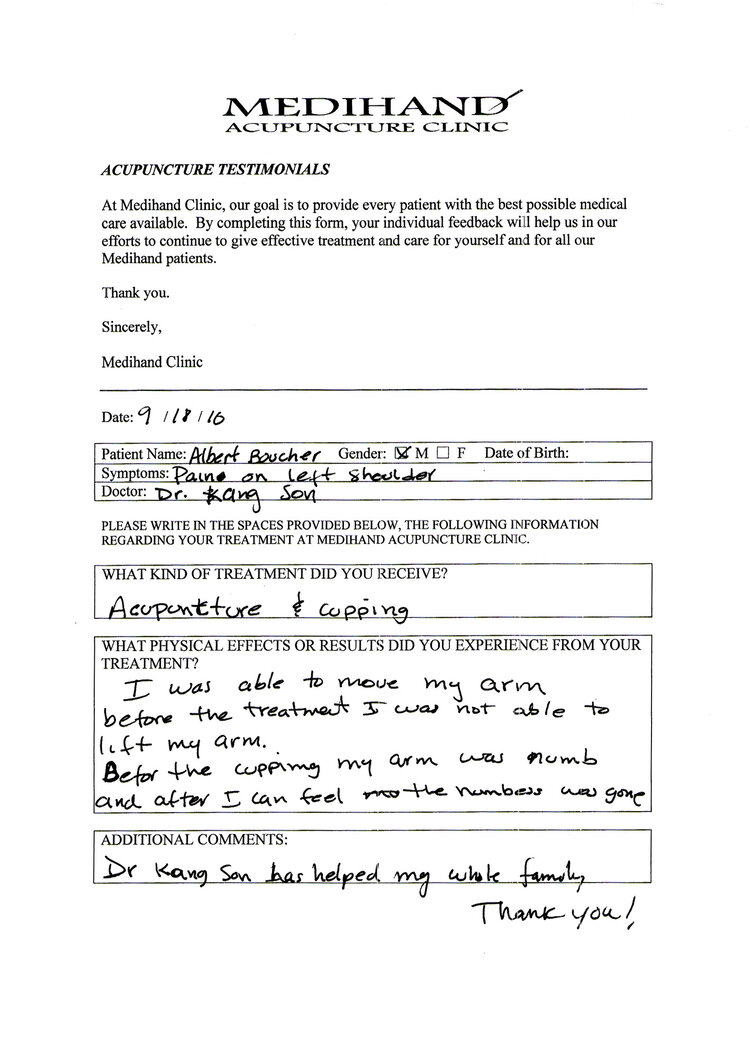 MEDIHAND
ACUPUNCTURE CLINIC
ACUPUNCTURE TESTIMONIALS
At Medihand Clinic, our goal is to provide every patient with the best possible medical
care available. By completing this form, your individual feedback will help us in our
efforts to continue to give effective treatment and care for yourself and for all our
Medihand patients.
Thank you.
Sincerely,
Medihand Clinic
Date: 9 / 18 / 16
Patient Name: Albert Boucher Gender: ☒ M ☐ F Date of Birth:
Symptoms: Paine on left shoulder
Doctor: Dr. Kang Son
PLEASE WRITE IN THE SPACES PROVIDED BELOW, THE FOLLOWING INFORMATION
REGARDING YOUR TREATMENT AT MEDIHAND ACUPUNCTURE CLINIC.
WHAT KIND OF TREATMENT DID YOU RECEIVE?
Acupuntture & cupping
WHAT PHYSICAL EFFECTS OR RESULTS DID YOU EXPERIENCE FROM YOUR
TREATMENT?
I was able to move my arm
before the treatment I was not able to
lift my arm.
Befor the cupping my arm was numb
and after I can feel the numbess was gone
ADDITIONAL COMMENTS:
Dr Kang Son has helped my whole family
Thank you!